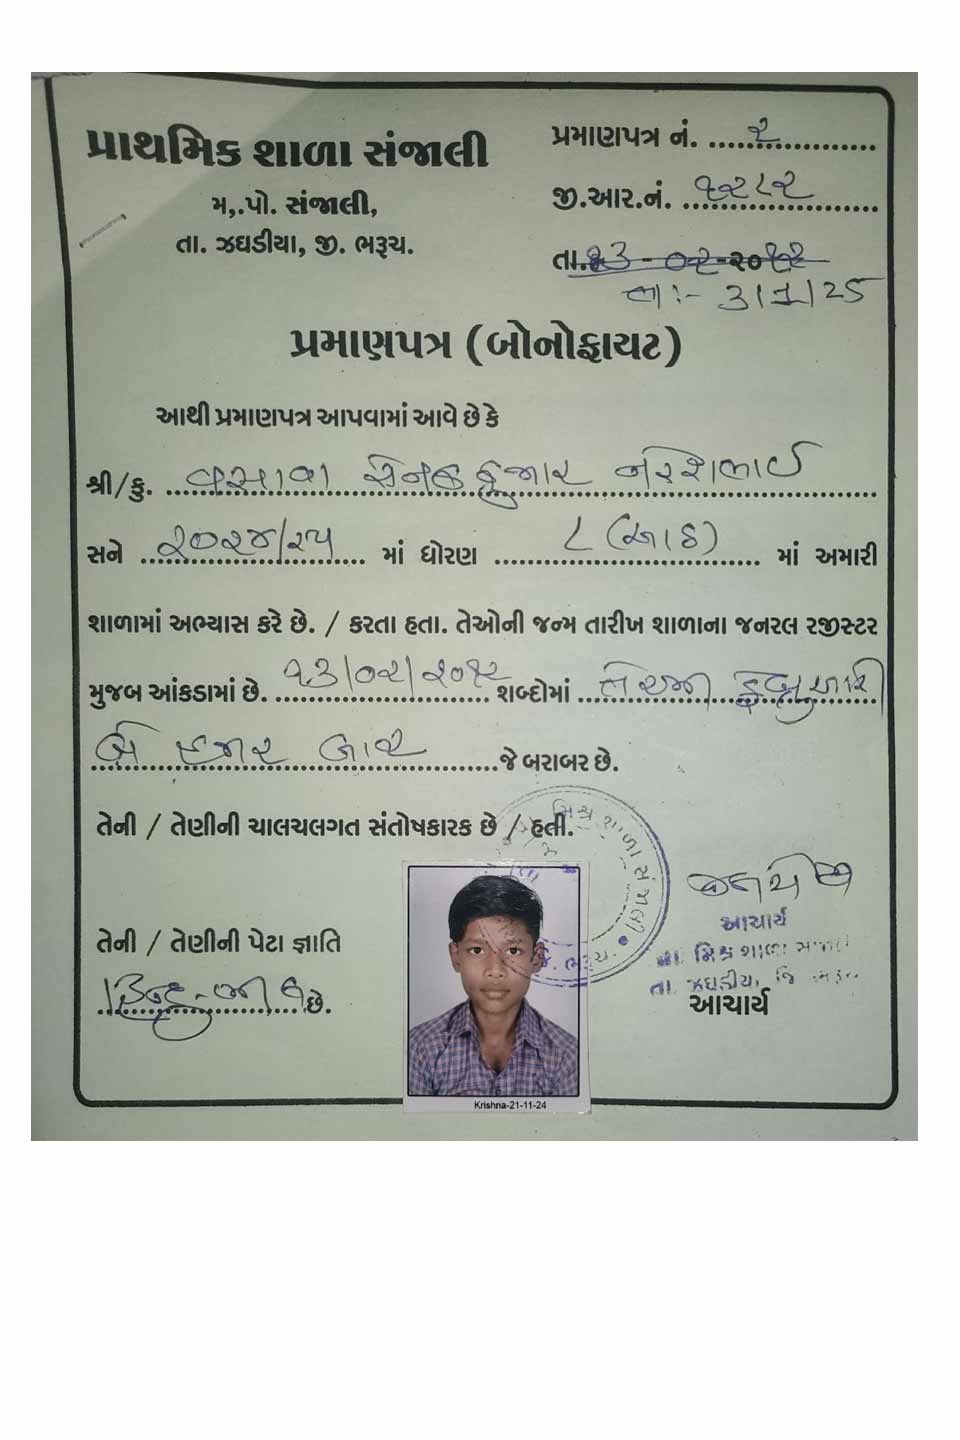 પ્રાથમિક શાળા સંજાલી
મ,.પો. સંજાલી,
તા. ઝઘડીયા, જી. ભરૂચ.
પ્રમાણપત્ર નં. ૨
જી.આર.નં. ૧૨૮૨
તા.૧૩-૦૨-૨૦૧૨
તા:- 3/1/25
પ્રમાણપત્ર (બોનોફાયટ)
આથી પ્રમાણપત્ર આપવામાં આવે છે કે
શ્રી/કુ. વસાવા કુમાર નરેશભાઈ
સને ૨૦૨૪/૨૫ માં ધોરણ ૮ (આઠ) માં અમારી
શાળામાં અભ્યાસ કરે છે. / કરતા હતા. તેઓની જન્મ તારીખ શાળાના જનરલ રજીસ્ટર
મુજબ આંકડામાં છે. ૧૩/૦૨/૨૦૧૨ શબ્દોમાં તેરમી ફેબ્રુઆરી
બે હજાર બાર જે બરાબર છે.
તેની / તેણીની ચાલચલગત સંતોષકારક છે / હતી.
મિશ્ર શાળા સંજાલી
જિ. ભરૂચ.
આચાર્ય
મિશ્રશાળા સંજાલી
તા. ઝઘડીયા, જિ ભરૂચ
આચાર્ય
તેની / તેણીની પેટા જ્ઞાતિ
હિન્દુ-ભીલ છે.
Krishna-21-11-24